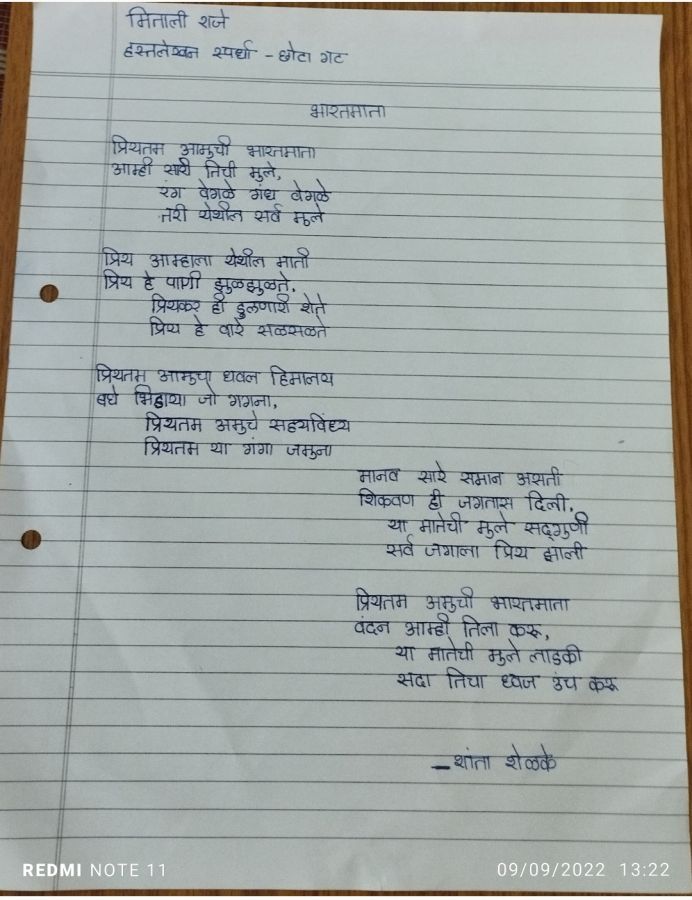 मिताली राजे
हस्तलेखन स्पर्धा - छोटा गट
भारतमाता
प्रियतम आमुची भारतमाता
आम्ही सारी तिची मुले,
रंग वेगळे गंध वेगळे
तरी येथील सर्व मुले
प्रिय आम्हाला येथील माती
प्रिय हे पाणी झुळझुळते.
प्रियकर ही डुलणारी शेते
प्रिय हे वारे सळसळते
प्रियतम आमुचा धवल हिमालय
बघे भिडाया जो गगना,
प्रियतम अमुचे सह्यविंध्य
प्रियतम या गंगा जमुना
मानव सारे समान असती
शिकवण ही जगतास दिली.
या मातेची मुले सद्‌गुणी
सर्व जगाला प्रिय झाली
प्रियतम अमुची भारतमाता
वंदन आम्ही तिला करू,
या मातेची मुले लाडकी
सदा तिचा ध्वज उंच करू
- शांता शेळके
REDMI NOTE 11
09/09/2022 13:22